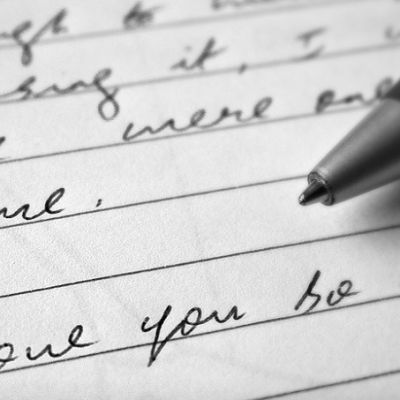 to
sing it, I
were one
me.
ove you so